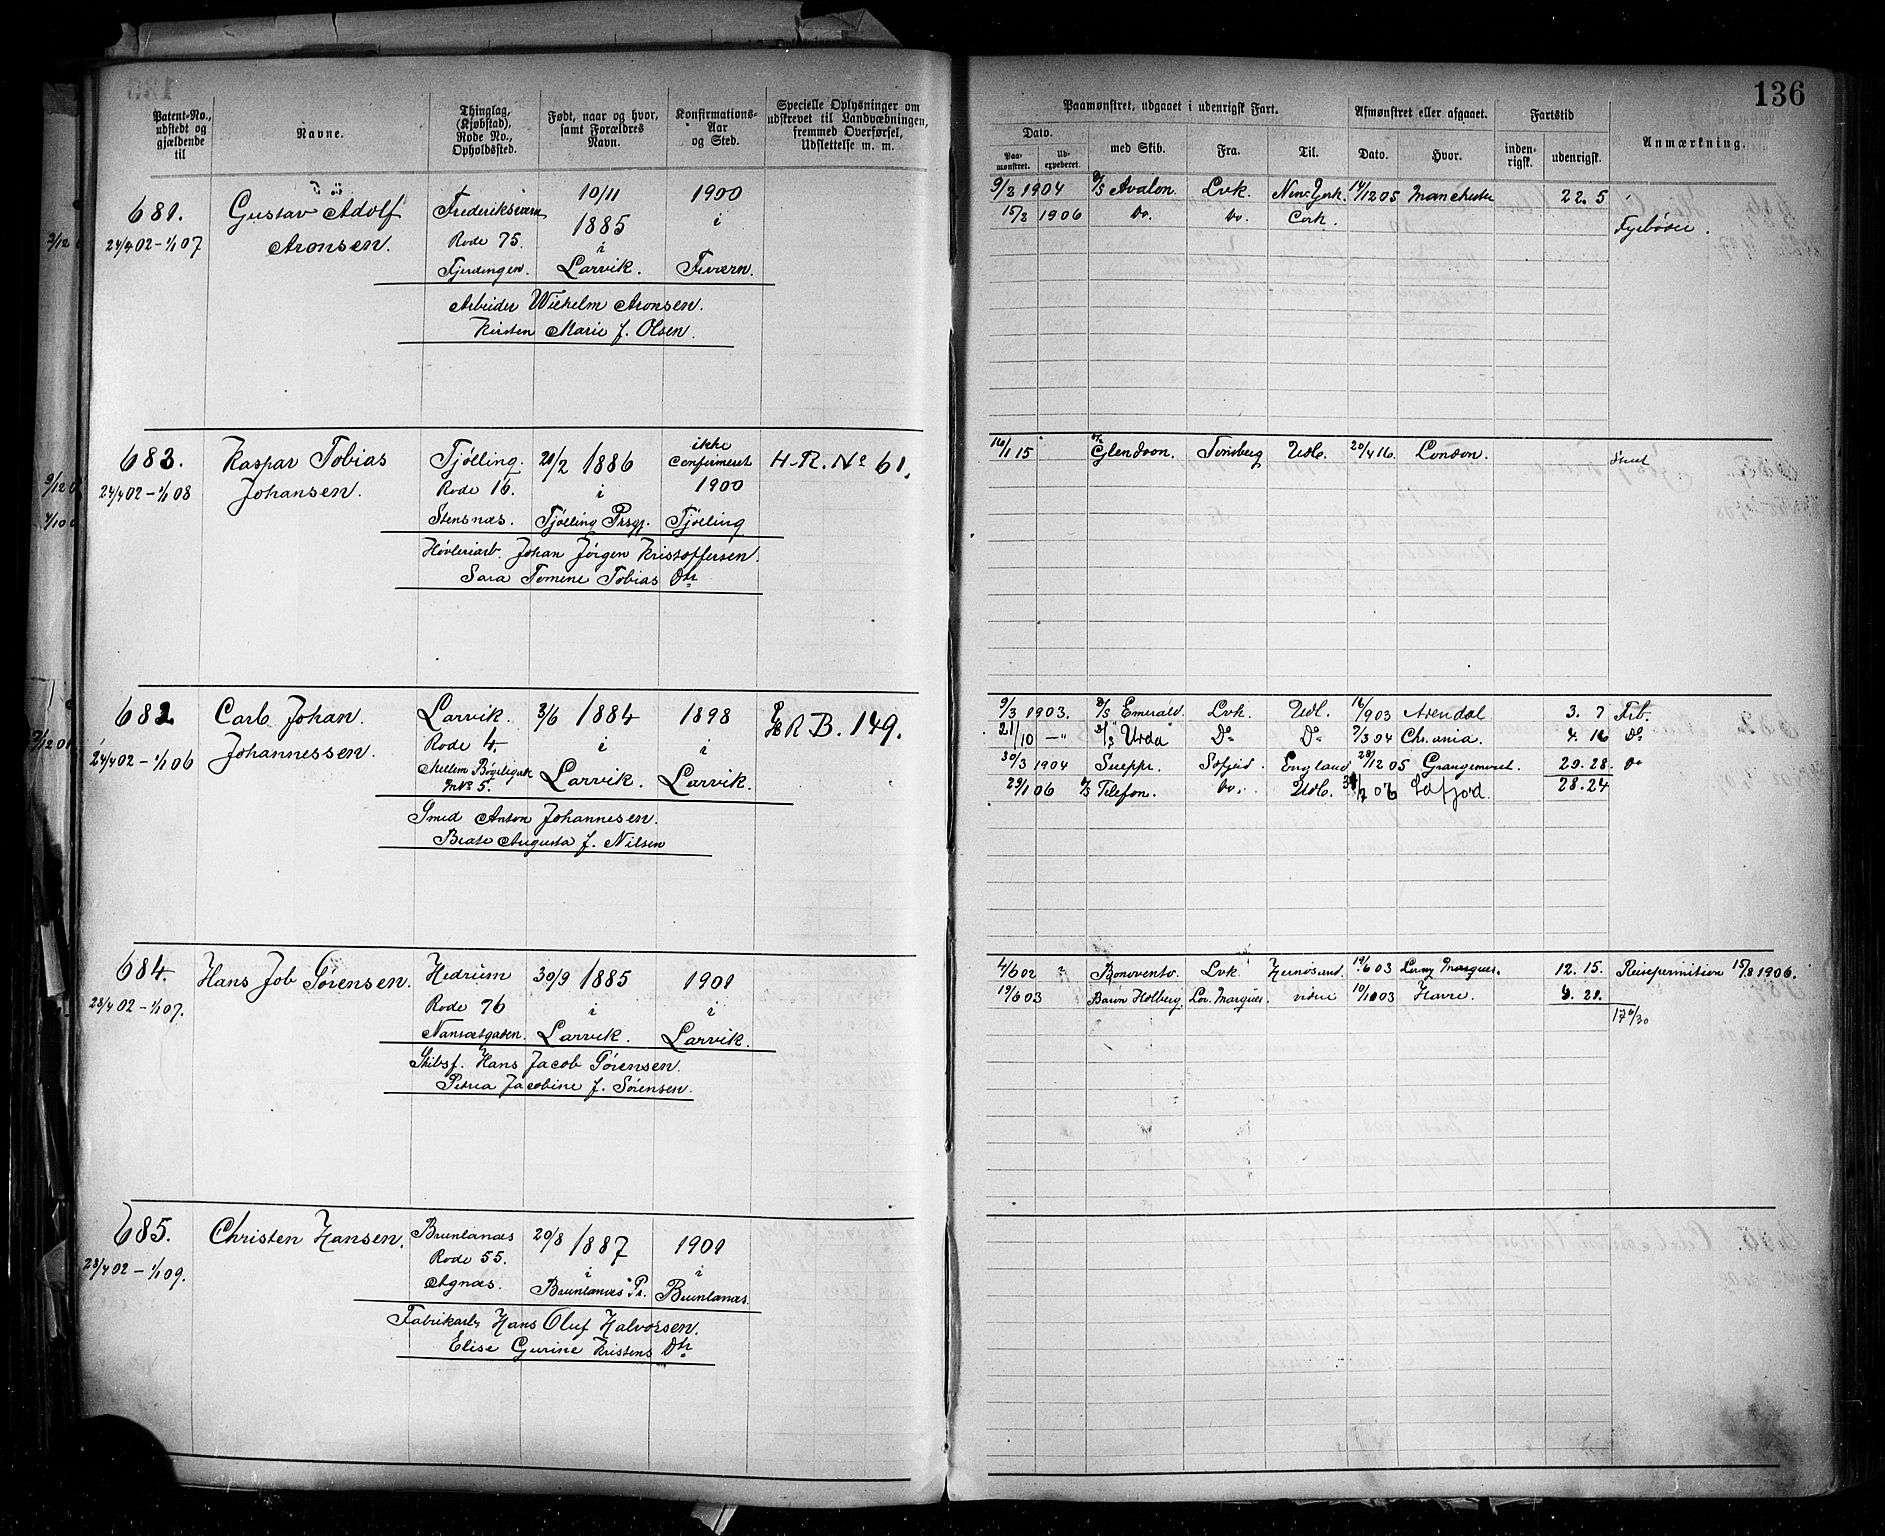 136
Patent-No., udstedt og gjældende til
Navne.
Thinglag, (Kjøbstad), Rode No., Opholdssted.
Født, naar og hvor, samt Forældres Navn.
Konfirmations-Aar og Sted.
Specielle Oplysninger om udskrevet til Landværbningen, fremmed Overførsel, Udslettelse m. m.
Paamønstret, udgaaet i udenrigsk Fart.
Afmønstret eller afgaaet.
Fartstid
Anmærkning.
Dato.
Paa-mønstret.
Ud-expederet.
med Skib.
Fra.
Til.
Dato.
Hvor.
inden-rigsk.
udenrigsk.
681. Gustav Adolf Fredriksværn 10/11 1900
Aronsen. Rode 75. 1885 i
24/4 02 - 1/1 07 Fjerdingen. i Larvik. F.værn.
Arbeider Wilhelm Aronsen.
Kirsten Marie f. Olsen.
9/2 1904 Avalon. Lvk. New York. 14/12 05 Manchester 22. 5
15/2 1906 Do. Do. Cork.
Fyrbøder.
683. Kaspar Tobias Tjølling. 21/2 1886 ikke confirmeret H.R. No 61.
24/4 02 - 1/1 08 Johansen. Rode 16. i 1900
Stensnæs. Tjølling Prsgj. Tjølling
Høvleriarb. Johan Jørgen Kristoffersen.
Sara Tomene Tobias Dtr
15 Glendoon. Tønsberg Udl. 20/4 16. London.
682. Carl Johan. Larvik. 3/6 1884 1898 R B. 149.
24/4 02 - 1/1 06 Johannessen. Rode 4. i i
Larvik. Larvik.
Smed Anton Johannesen.
Beate Augusta f. Nilsen
9/3 1903. Emerald. Lvk. Udl. 16/9 03 Arendal 3. 7
21/10 -"- Urda Do Do 7/3 04 Ch.ania. 4. 16 Do
30/3 1904 Sneppe. S.fjord. England 28/12 05 Grangemouth. 20. 28. Do
29/1 06 Telefon. Do. Udl. S.fjord. 28. 24
684. Hans Job Sørensen. Hedrum 30/9 1885 1901
23/4 02 - 1/1 07. Rode 76 i i
Nansetgaden. Larvik. Larvik.
Skibsf. Hans Jacob Sørensen.
Petrea Jacobine f. Sørensen.
4/6 02 Bonovento. Lvk. Hernøsand. 19/6 03 Lour. Marques. 12. 15. Reisepermition 15/8 1906.
19/6 03 Baron Holberg. Lor. Marques. videre 10/11 03 Havre. 4. 21.
685. Christen Hansen. Brunlanæs 20/8 1887 1901
23/4 02 - 1/1 09. Rode 55. i i
Agnæs. Brunlanæs Pr. Brunlanæs.
Fabrikarb. Hans Oluf Halvorsen.
Elise Gurine Kristens Dtr